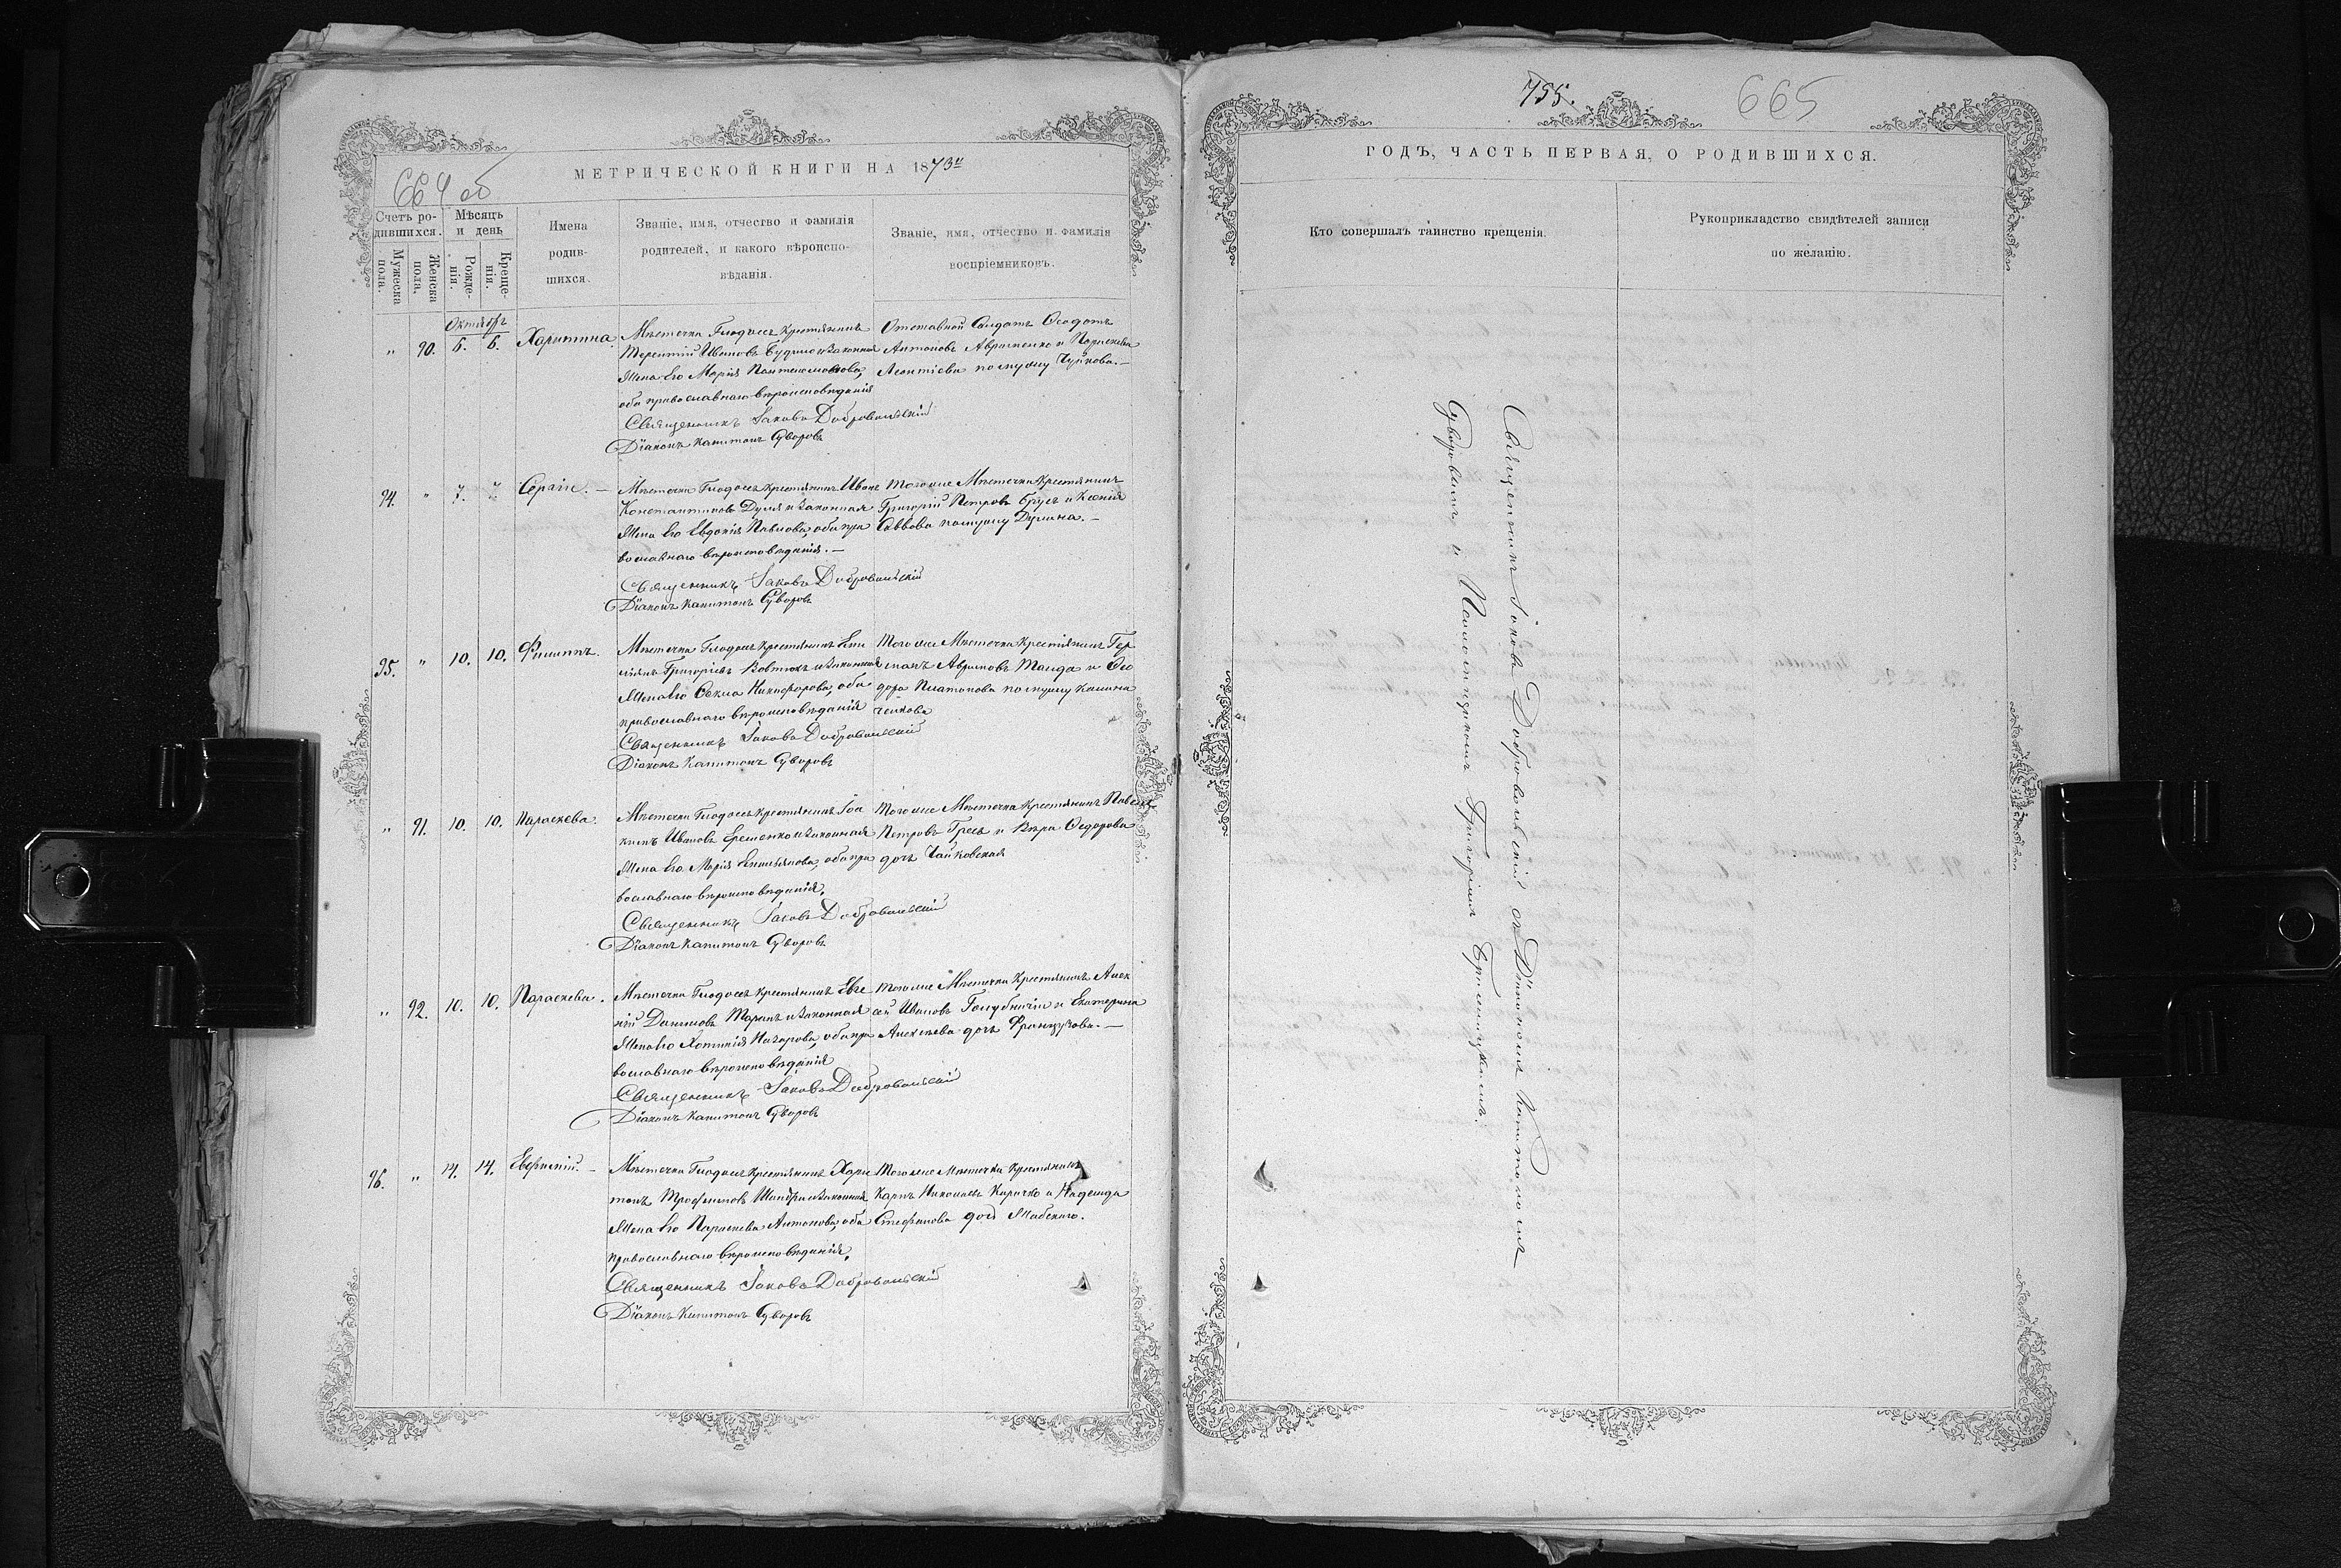 664 об
МЕТРИЧЕСКОЙ КНИГИ НА 1873й
Счетъ ро-
дившихся.
Мѣсяцъ
и день
Мужеска
пола.
Женска
пола.
Рожде-
нія.
Креще-
нія.
Имена
родив-
шихся.
Званіе, имя, отчество и фамилія
родителей, и какого вѣроиспо-
вѣданія.
Званіе, имя, отчество и фамилія
воспріемниковъ.
Октябрь
" 90. 5. 5. Харитина.
Мѣстечка Глодосъ крестьянинъ
Терентій Ивановъ и законная
жена его Марія Пантелимонова,
оба православнаго вѣроисповѣданія
Отставной Солдатъ Ѳеодотъ
Антоновъ Авраменко и Параскева
Леонтіева по мужу Чуйкова.—
Священникъ Іаковъ Добровольскій
Діаконъ Капитонъ Суворовъ
94. " 7. 7. Сергій.—
Мѣстечка Глодосъ крестьянинъ Иванъ
Константиновъ Дуля и законная
жена его Евдокія Павлова, оба пра
вославнаго вѣроисповѣданія.—
Того же Мѣстечка крестьянинъ
Григорій Петровъ Брусъ и Ксенія
Саввова по мужу
Священникъ Іаковъ Добровольскій
Діаконъ Капитонъ Суворовъ
95. " 10. 10. Филиппъ.
Мѣстечка Глодосъ крестьянинъ Еми
ліянъ Григоріевъ Вовтокъ и законная
жена его Ѳекла Никифорова, оба
православнаго вѣроисповѣданія
Того же Мѣстечка крестьянинъ Гер
манъ Авраамовъ и Ѳео
дора Платонова по мужу Калини
ченкова
Священникъ Іаковъ Добровольскій
Діаконъ Капитонъ Суворовъ
" 91. 10. 10. Параскева.
Мѣстечка Глодосъ крестьянинъ Іоа
кимъ Ивановъ Еременко и законная
жена его Марія Емельянова, оба пра
вославнаго вѣроисповѣданія.
Того же Мѣстечка крестьянинъ Павелъ
Петровъ Гресь и Вѣра Ѳедорова
дочь Чайковская
Священникъ Іаковъ Добровольскій
Діаконъ Капитонъ Суворовъ
" 92. 10. 10. Параскева.
Мѣстечка Глодосъ крестьянинъ Евге
ній Даниловъ и законная
жена его Хотинія Назарова, оба пра
вославнаго вѣроисповѣданія
Того же Мѣстечка крестьянинъ Алек
сѣй Ивановъ Голубничій и Екатерина
Алексѣева дочь Французова.—
Священникъ Іаковъ Добровольскій
Діаконъ Капитонъ Суворовъ
96. " 14. 14. —
Мѣстечка Глодосъ крестьянинъ Хари
тонъ Трофимовъ и законная
жена его Параскева Антонова, оба
православнаго вѣроисповѣданія.
Того же Мѣстечка крестьянинъ
Карпъ Николаевъ Киричко и Надежда
Стефанова дочь
Священникъ Іаковъ Добровольскій
Діаконъ Капитонъ Суворовъ
755.
665
ГОДЪ, ЧАСТЬ ПЕРВАЯ, О РОДИВШИХСЯ.
Кто совершалъ таинство крещенія.
Рукоприкладство свидѣтелей записи
по желанію.
Священникъ Іаковъ Добровольскій съ Діакономъ Капитономъ
Суворовымъ и Псаломщикомъ Григоріемъ